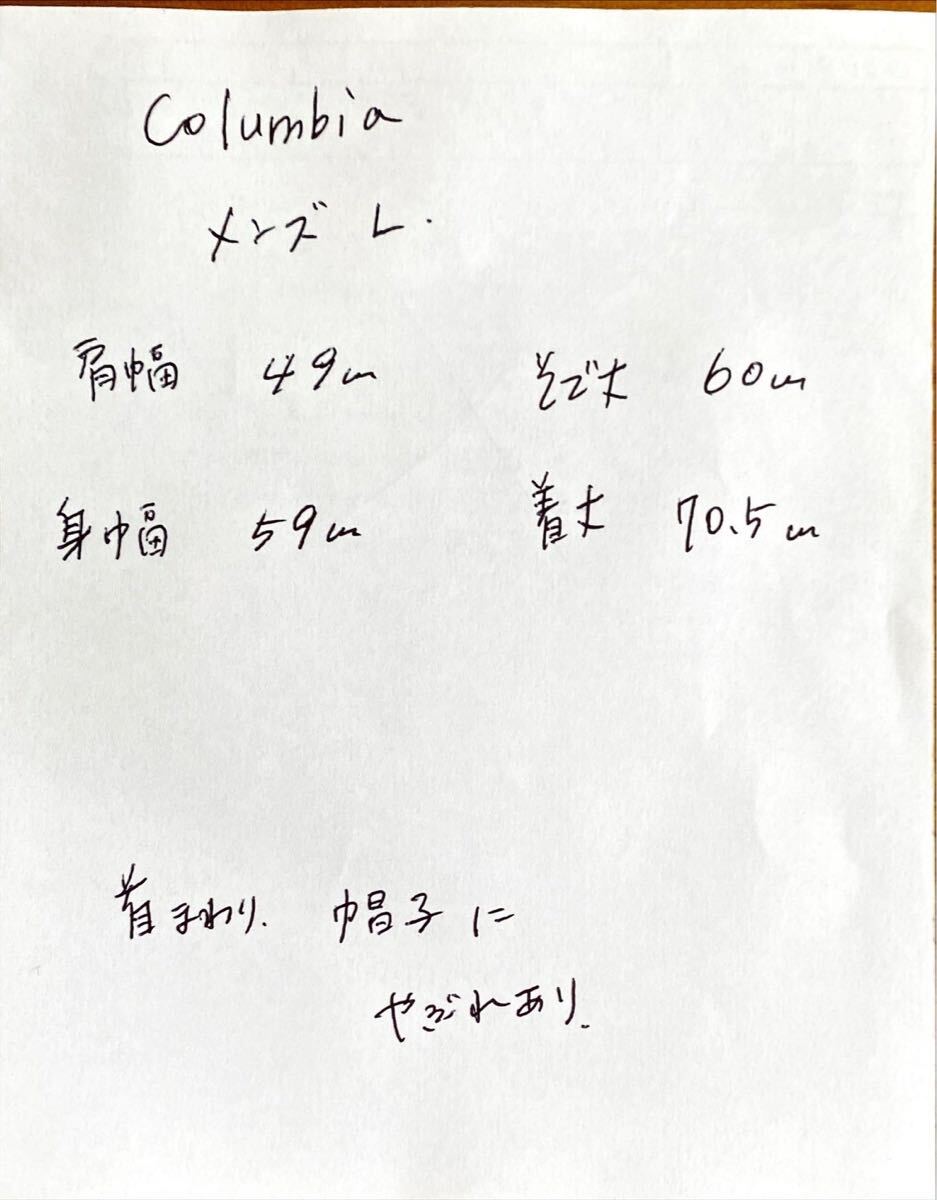 Columbia
メンズ L.
肩幅 49cm そで丈 60cm
身幅 59cm 着丈 70.5cm
首まわり. 帽子に
やぶれあり.